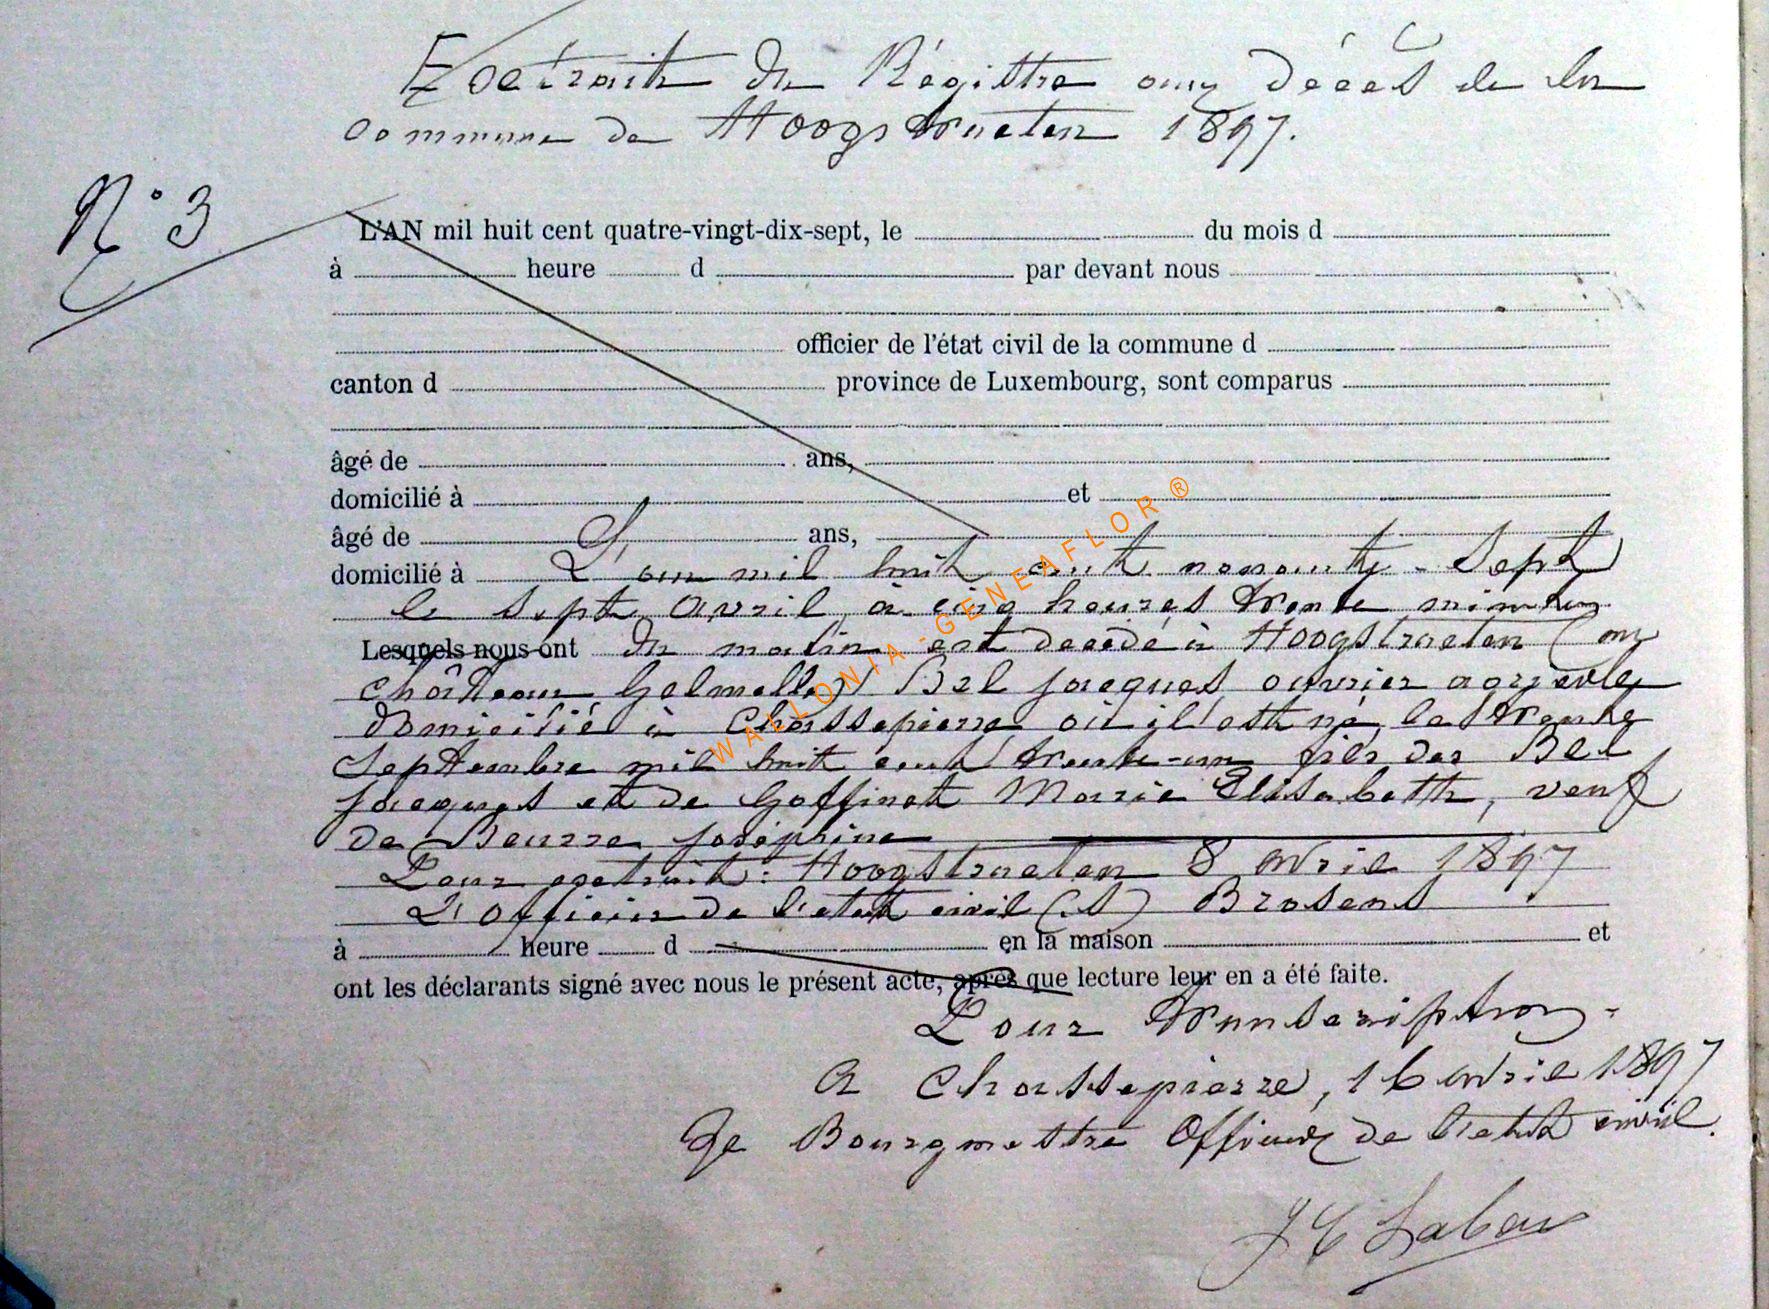 Extrait du Régistre aux Décès de la
Commune de Hoogstraeten 1897.
N° 3
L'AN mil huit cent quatre-vingt-dix-sept, le du mois d
à heure d par devant nous
officier de l'état civil de la commune d
canton d province de Luxembourg, sont comparus
âgé de ans,
domicilié à et
âgé de ans,
domicilié à L'an mil huit cent nonante-Sept
le sept Avril à cinq heures trente minutes
Lesquels nous ont du matin est décédé à Hoogstraeten (au
château Gelmelle) Bel Jacques ouvrier agricole
domicilié à Chassepierre où il est né, le trente
Septembre mil huit cent trente-un fils des Bel
Jacques et de Goffinet Marie Elisabeth, veuf
de Beurre Joséphine
Pour extrait: Hoogstraeten 8 Avril 1897
L'Officier de l'état civil (s) Brosens
à heure d en la maison et
ont les déclarants signé avec nous le présent acte, après que lecture leur en a été faite.
Pour transcription
A Chassepierre, 16 Avril 1897
Le Bourgmestre Officier de l'état civil.
WALLONIA-GENEAFLOR ®